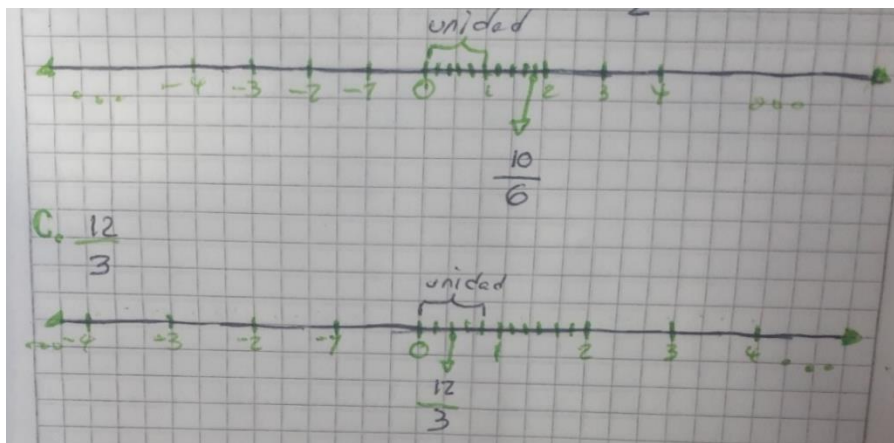 unidad
-4 -3 -2 -1 0 1 2 3 4
...
...
10
6
C. 12
3
unidad
... -4 -3 -2 -1 0 1 2 3 4 ...
12
3